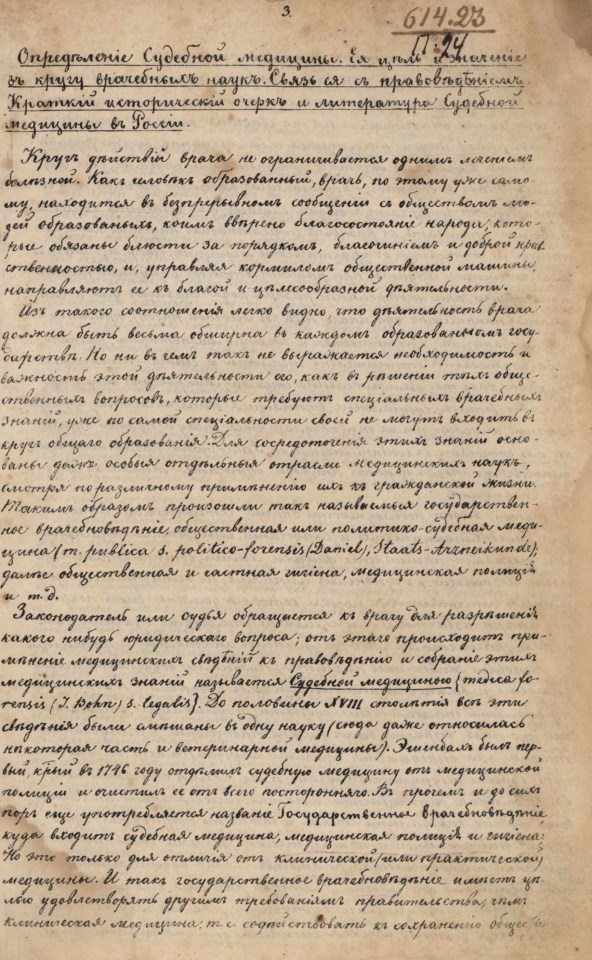 3.
614.23
П-24
Опредѣленіе Судебной медицины. Ея цѣль и значеніе
въ кругу врачебныхъ наукъ. Связь ея съ правовѣдѣніемъ.
Краткій историческій очеркъ и литература Судебной
медицины въ Россіи.
Кругъ дѣйствій врача не ограничивается однимъ леченіемъ
болѣзней. Какъ человѣкъ образованный, врачъ, по этому уже само-
му, находится въ безпрерывномъ сообщеніи съ обществомъ лю-
дей образованыхъ, коимъ ввѣрено благосостояніе народа, кото-
рые обязаны блюсти за порядкомъ, благочиніемъ и доброй нрав-
ственностью, и, управляя кормиломъ общественной машины,
направляютъ ее къ благой и цѣлесообразной дѣятельности.
Изъ такого соотношенія легко видно, что дѣятельность врача
должна быть весьма обширна въ каждомъ образованномъ госу-
дарствѣ. Но ни въ чемъ такъ не выражается необходимость и
важность этой дѣятельности его, какъ въ рѣшеніи тѣхъ обще-
ственныхъ вопросовъ, которые требуютъ спеціальныхъ врачебныхъ
знаній, уже по самой спеціальности своей не могутъ входить въ
кругъ общаго образованія. Для сосредоточенія этихъ знаній осно-
ваны даже особыя отдѣльныя отрасли медицинскихъ наукъ,
смотря по различному примѣненію ихъ къ гражданской жизни.
Такимъ образомъ произошли такъ называемыя государствен-
ное врачебновѣдѣніе, общественная или политико-судебная меди-
цина (m. publica s. politico-forensis (Daniel), Staats-Arzneikunde);
далѣе общественная и частная гигіена, медицинская полиція
и т. д.
Законодатель или судья обращается къ врачу для разрѣшенія
какого нибудь юридическаго вопроса; отъ этаго происходитъ при-
мѣненіе медицинскихъ свѣдѣній къ правовѣдѣнію и собраніе этихъ
медицинскихъ знаній называется Судебной медициною (medica fo-
rensis (J. Bohn) s. legalis). До половины XVIII столѣтія всѣ эти
свѣдѣнія были смѣшаны въ одну науку (сюда даже относилась
нѣкоторая часть и ветеринарной медицины). Эшенбахъ былъ пер-
вый, кͭрый въ 1746 году отдѣлилъ судебную медицину отъ медицинской
полиціи и очистилъ ее отъ всего посторонняго. Въ прочемъ и до сихъ
поръ еще употребляется названіе Государственное Врачебновѣдѣніе
куда входитъ судебная медицина, медицинская полиція и гигіена.
Но это только для отличія отъ клинической (или практической)
медицины. И такъ государственное врачебновѣдѣніе имѣетъ цѣ-
лью удовлетворять другимъ требованіямъ правительства, чѣмъ
клиническая медицина; т. е. содѣйствовать къ сохраненію обществ